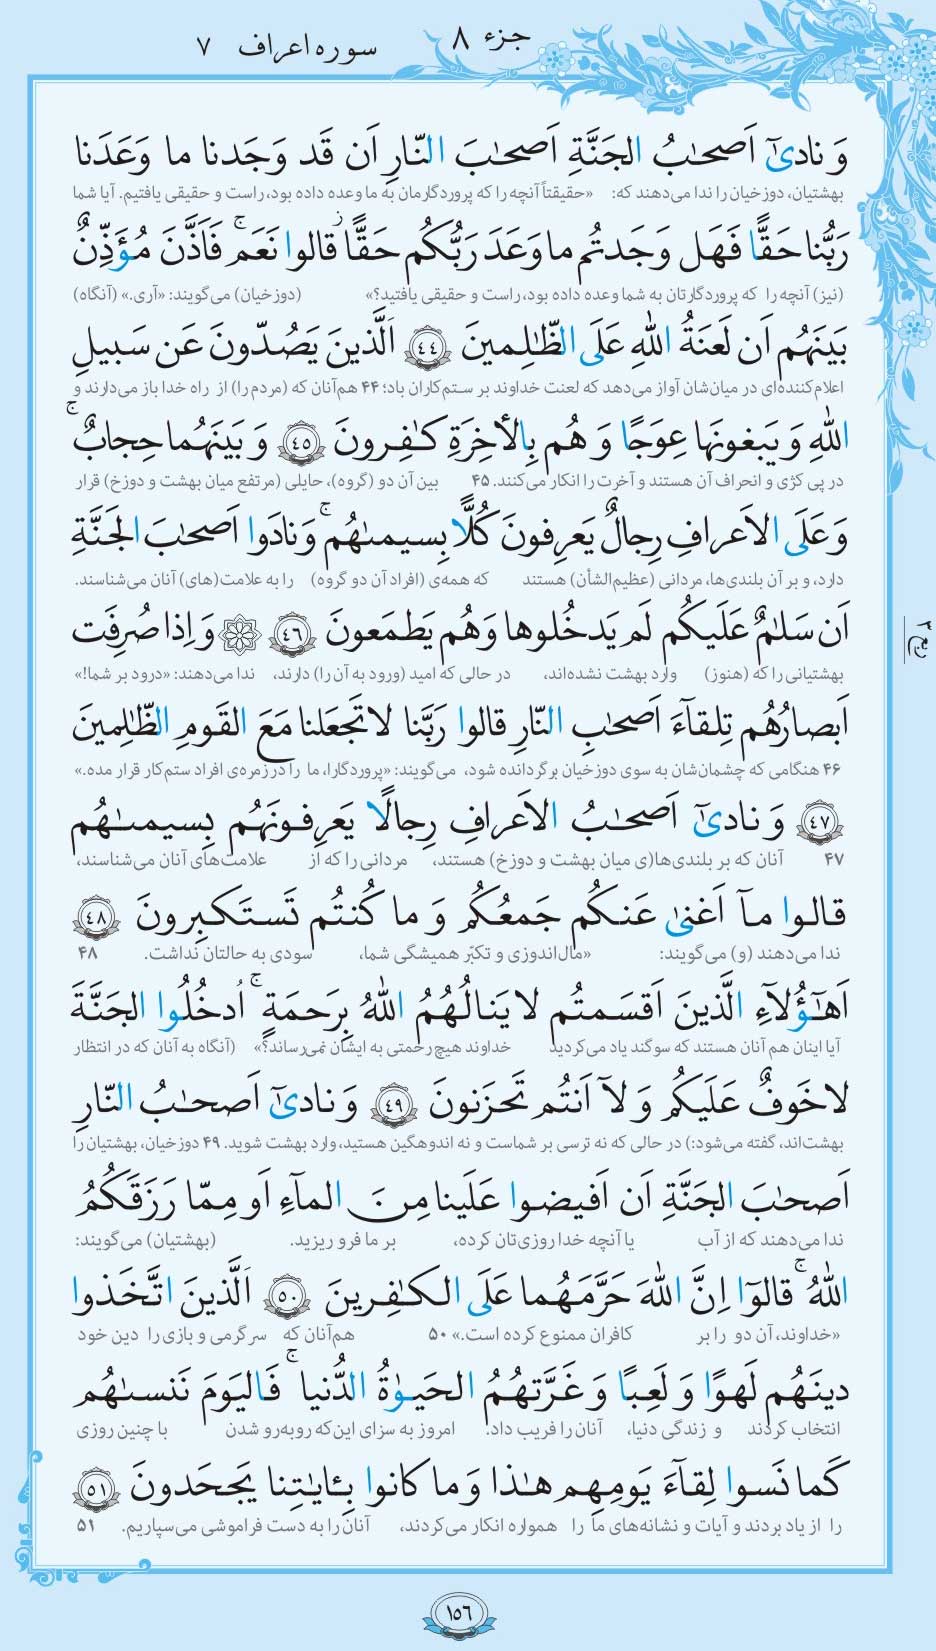 جزء ۸ سوره اعراف ۷
وَ نادىٰٓ اَصحٰبُ الجَنَّةِ اَصحٰبَ النّارِ اَن قَد وَجَدنا ما وَعَدَنا
بهشتیان، دوزخیان را ندا می‌دهند که: «حقیقتاً آنچه را که پروردگارمان به ما وعده داده بود، راست و حقیقی یافتیم. آیا شما
رَبُّنا حَقًّا فَهَل وَجَدتُم ما وَعَدَ رَبُّكُم حَقًّا ۖ قالوا نَعَم ۚ فَاَذَّنَ مُؤَذِّنٌ
(نیز) آنچه را که پروردگارتان به شما وعده داده بود، راست و حقیقی یافتید؟» (دوزخیان) می‌گویند: «آری.» (آنگاه)
بَينَهُم اَن لَعنَةُ اللّٰهِ عَلَى الظّٰلِمينَ ﴿٤٤﴾ اَلَّذينَ يَصُدّونَ عَن سَبيلِ
اعلام‌کننده‌ای در میان‌شان آواز می‌دهد که لعنت خداوند بر ستم‌کاران باد؛ ۴۴ هم‌آنان که (مردم را) از راه خدا باز می‌دارند و
اللّٰهِ وَ يَبغونَها عِوَجًا وَ هُم بِالأخِرَةِ كٰفِرونَ ﴿٤٥﴾ وَ بَينَهُما حِجابٌ ۚ
در پی کژی و انحراف آن هستند و آخرت را انکار می‌کنند. ۴۵ بین آن دو (گروه)، حایلی (مرتفع میان بهشت و دوزخ) قرار
وَ عَلَى الاَعرافِ رِجالٌ يَعرِفونَ كُلًّا بِسيمىٰهُم ۚ وَ نادَوا اَصحٰبَ الجَنَّةِ
دارد، و بر آن بلندی‌ها، مردانی (عظیم‌الشأن) هستند که همه‌ی (افراد آن دو گروه) را به علامت(های) آنان می‌شناسند.
اَن سَلٰمٌ عَلَيكُم لَم يَدخُلوها وَ هُم يَطمَعونَ ﴿٤٦﴾ وَ اِذا صُرِفَت
بهشتیانی را که (هنوز) وارد بهشت نشده‌اند، در حالی که امید (ورود به آن را) دارند، ندا می‌دهند: «درود بر شما!»
ربع ۳
اَبصارُهُم تِلقآءَ اَصحٰبِ النّارِ قالوا رَبَّنا لا تَجعَلنا مَعَ القَومِ الظّٰلِمينَ
۴۶ هنگامی که چشمان‌شان به سوی دوزخیان برگردانده شود، می‌گویند: «پروردگارا، ما را در زمره‌ی افراد ستم‌کار قرار مده.»
﴿٤٧﴾ وَ نادىٰٓ اَصحٰبُ الاَعرافِ رِجالًا يَعرِفونَهُم بِسيمىٰهُم
۴۷ آنان که بر بلندی‌ها(ی میان بهشت و دوزخ) هستند، مردانی را که از علامت‌های آنان می‌شناسند،
قالوا مآ اَغنىٰ عَنكُم جَمعُكُم وَ ما كُنتُم تَستَكبِرونَ ﴿٤٨﴾
ندا می‌دهند (و) می‌گویند: «مال‌اندوزی و تکبّر همیشگی شما، سودی به حالتان نداشت. ۴۸
اَهٰٓؤُلآءِ الَّذينَ اَقسَمتُم لا يَنالُهُمُ اللّٰهُ بِرَحمَةٍ ۚ اُدخُلُوا الجَنَّةَ
آیا اینان هم آنان هستند که سوگند یاد می‌کردید خداوند هیچ رحمتی به ایشان نمی‌رساند؟» (آنگاه به آنان که در انتظار
لا خَوفٌ عَلَيكُم وَ لآ اَنتُم تَحزَنونَ ﴿٤٩﴾ وَ نادىٰٓ اَصحٰبُ النّارِ
بهشت‌اند، گفته می‌شود:) در حالی که نه ترسی بر شماست و نه اندوهگین هستید، وارد بهشت شوید. ۴۹ دوزخیان، بهشتیان را
اَصحٰبَ الجَنَّةِ اَن اَفيضوا عَلَينا مِنَ المآءِ اَو مِمّا رَزَقَكُمُ
ندا می‌دهند که از آب یا آنچه خدا روزی‌تان کرده، بر ما فرو ریزید. (بهشتیان) می‌گویند:
اللّٰهُ ۚ قالوٓا اِنَّ اللّٰهَ حَرَّمَهُما عَلَى الكٰفِرينَ ﴿٥٠﴾ اَلَّذينَ اتَّخَذوا
«خداوند، آن دو را بر کافران ممنوع کرده است.» ۵۰ هم‌آنان که سرگرمی و بازی را دین خود
دينَهُم لَهوًا وَ لَعِبًا وَ غَرَّتهُمُ الحَيوٰةُ الدُّنيا ۚ فَاليَومَ نَنسىٰهُم
انتخاب کردند و زندگی دنیا، آنان را فریب داد. امروز به سزای این‌که روبه‌رو شدن با چنین روزی
كَما نَسوا لِقآءَ يَومِهِم هٰذا وَ ما كانوا بِـٔايٰتِنا يَجحَدونَ ﴿٥١﴾
را از یاد بردند و آیات و نشانه‌های ما را همواره انکار می‌کردند، آنان را به دست فراموشی می‌سپاریم. ۵۱
١٥٦